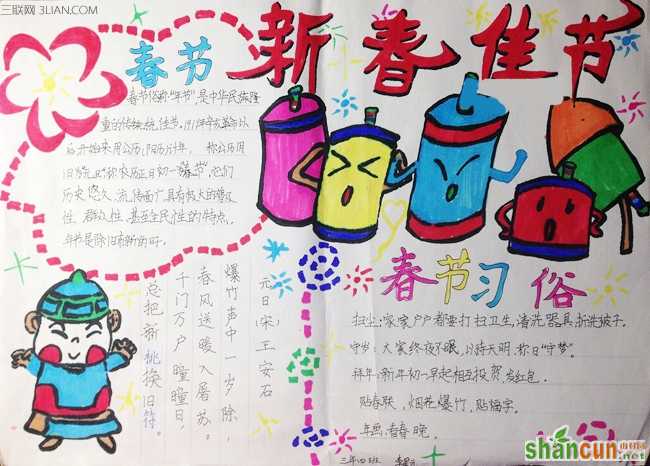 三联网 3LIAN.COM
新春佳节
春节
春节俗称"年节"是中华民族隆
重的传统佳节。
后开始采用公历
历史悠久、流传面广,具有极大的普及
性、群众性、甚至全民性的特点。
年节是除旧布新的
元日(宋)王安石
爆竹声中一岁除,
春风送暖入屠苏。
千门万户曈曈日,
总把新桃换旧符。
春节习俗
扫尘:家家户户都要打扫卫生,清洗器具,拆洗被子。
守岁:大家终夜不眠,以待天明,称曰"守岁"。
拜年:新年初一早起相互投贺,发红包。
贴春联,烟花爆竹,贴福字。
年画,看春晚。
三年四班
shancun
.net